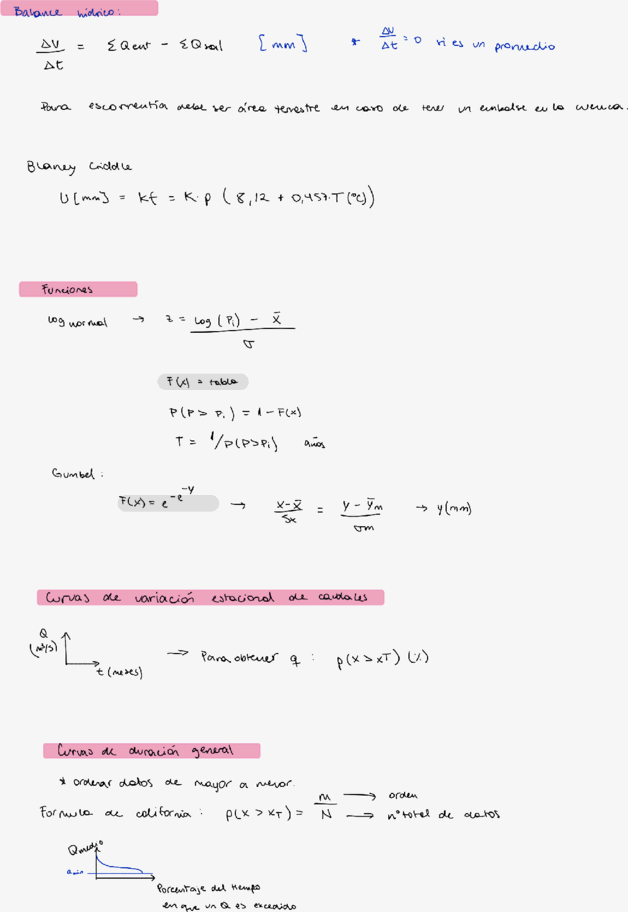 Balance hídrico:
ΔV/Δt = ΣQent - ΣQsal [mm] * ΔV/Δt = 0 si es un promedio
Para escorrentía debe ser área terrestre en caso de tener un embalse en la cuenca.
Blaney Criddle
U[mm] = kf = K·p (8,12 + 0,457·T(°C))
Funciones
Log normal → z = (Log(Pi) - x̄)/σ
F(x) = tabla
P(P > Pi) = 1 - F(x)
T = 1/P(P>Pi) años
Gumbel:
F(x) = e^-e^-y → (x-x̄)/Sx = (y - ȳm)/σm → y(mm)
Curvas de variación estacional de caudales
Q
(m³/s)
t (meses)
→ Para obtener q : p(x > xT) (%)
Curvas de duración general
* ordenar datos de mayor a menor.
Formula de california : p(x > xT) = m/N
m → orden
N → n° total de datos
Qmedio
Qmin
Porcentaje del tiempo
en que un Q es excedido